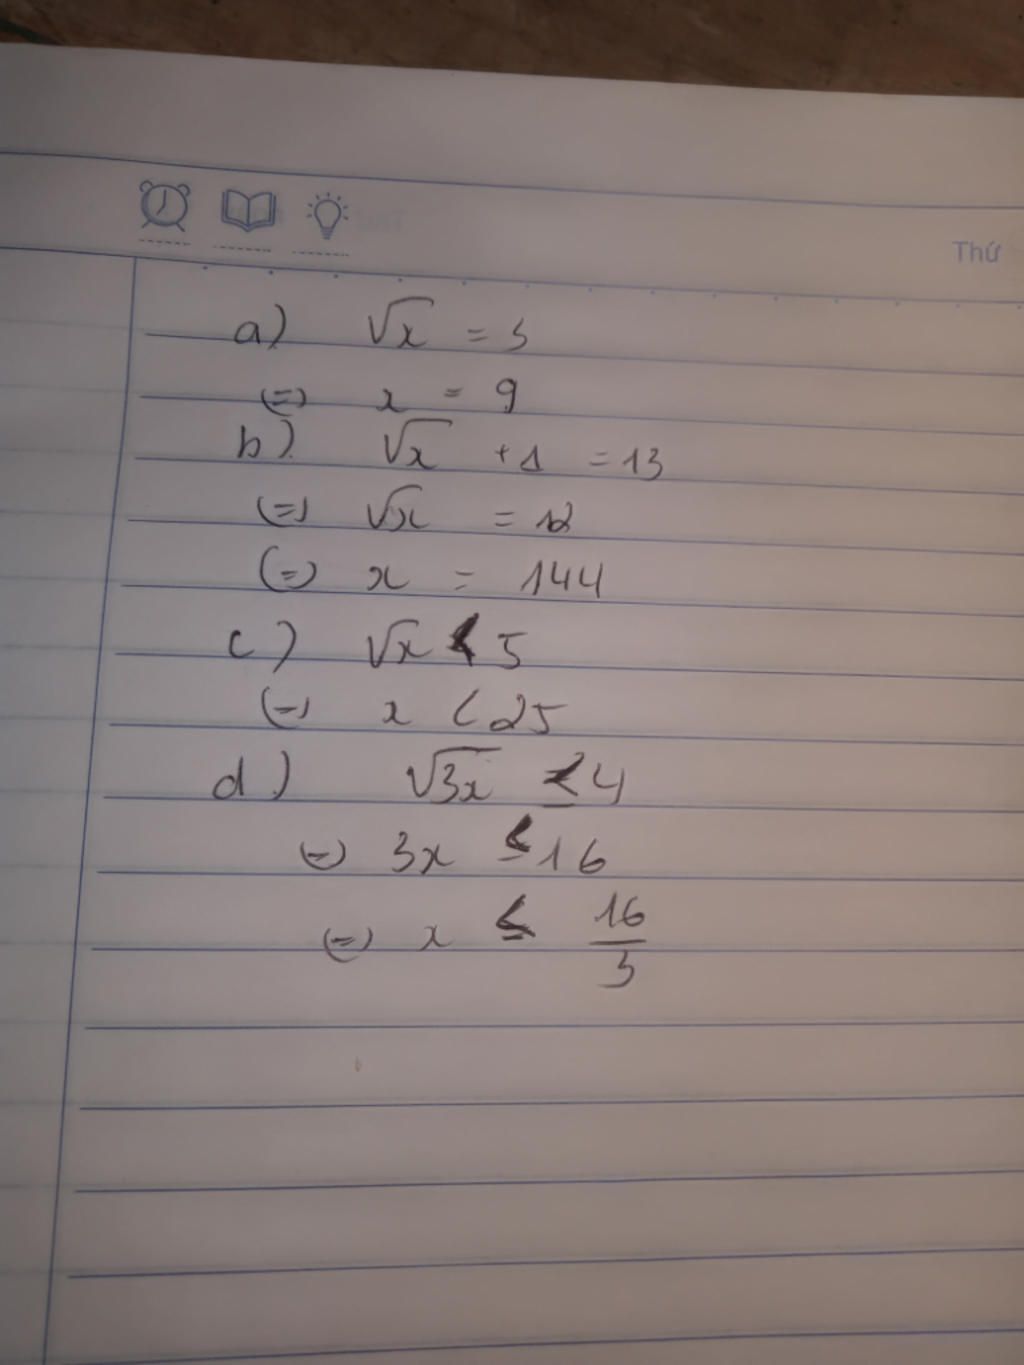 Thứ
a) √x = 3
(=) x = 9
b) √x + 1 = 13
(=) √x = 12
(=) x = 144
c) √x < 5
(=) x < 25
d) √3x ≤ 4
(=) 3x ≤ 16
(=) x ≤ 16/3